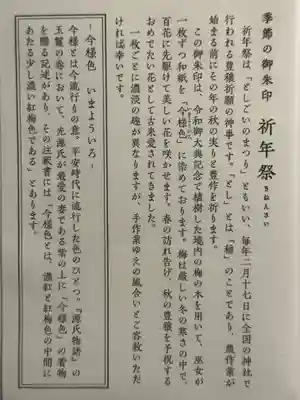 季節の御朱印 祈年祭
きねんさい
祈年祭は「としごいのまつり」ともいい、毎年二月十七日に全国の神社で
行われる豊穣祈願の神事です。「とし」とは「稲」のことであり、農作業が
始まる前にその年の秋の実りと豊作を祈ります。
この御朱印は、令和御大典記念で植樹した境内の梅の木を用いて、巫女が
一枚ずつ和紙を「今様色」に染めております。梅は厳しい冬の寒さの中で、
百花に先駆けて美しい花を咲かせます。春の訪れ告げ、秋の豊穣を予祝する
おめでたい花として古来愛されてきました。
一枚ごとに濃淡の趣が異なりますが、手作業ゆえの風合いとご容赦いただ
ければ幸いです。
−今様色 いまよういろ−
今様とは今流行りの意。平安時代に流行した色のひとつ。『源氏物語』の
玉鬘の巻において、光源氏が最愛の妻である紫の上に「今様色」の着物
を贈る記述があり、その注釈書には「今様色とは、濃紅と紅梅色の中間に
あたる少し濃い紅梅色である」とあります。